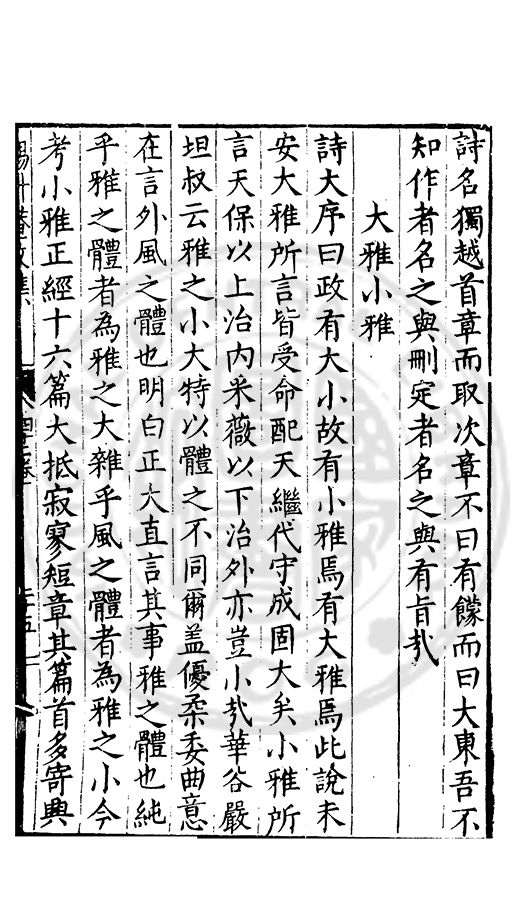 詩名獨越首章而取次章不曰有饛而曰大東吾不
知作者名之與刪定者名之與有旨哉
大雅小雅
詩大序曰政有大小故有小雅焉有大雅焉此說未
安大雅所言皆受命配天繼代守成固大矣小雅所
言天保以上治內采薇以下治外亦豈小哉華谷嚴
坦叔云雅之小大特以體之不同爾盖優柔委曲意
在言外風之體也明白正大直言其事雅之體也純
乎雅之體者為雅之大雜乎風之體者為雅之小今
考小雅正經十六篇大抵寂寥短章其篇首多寄興